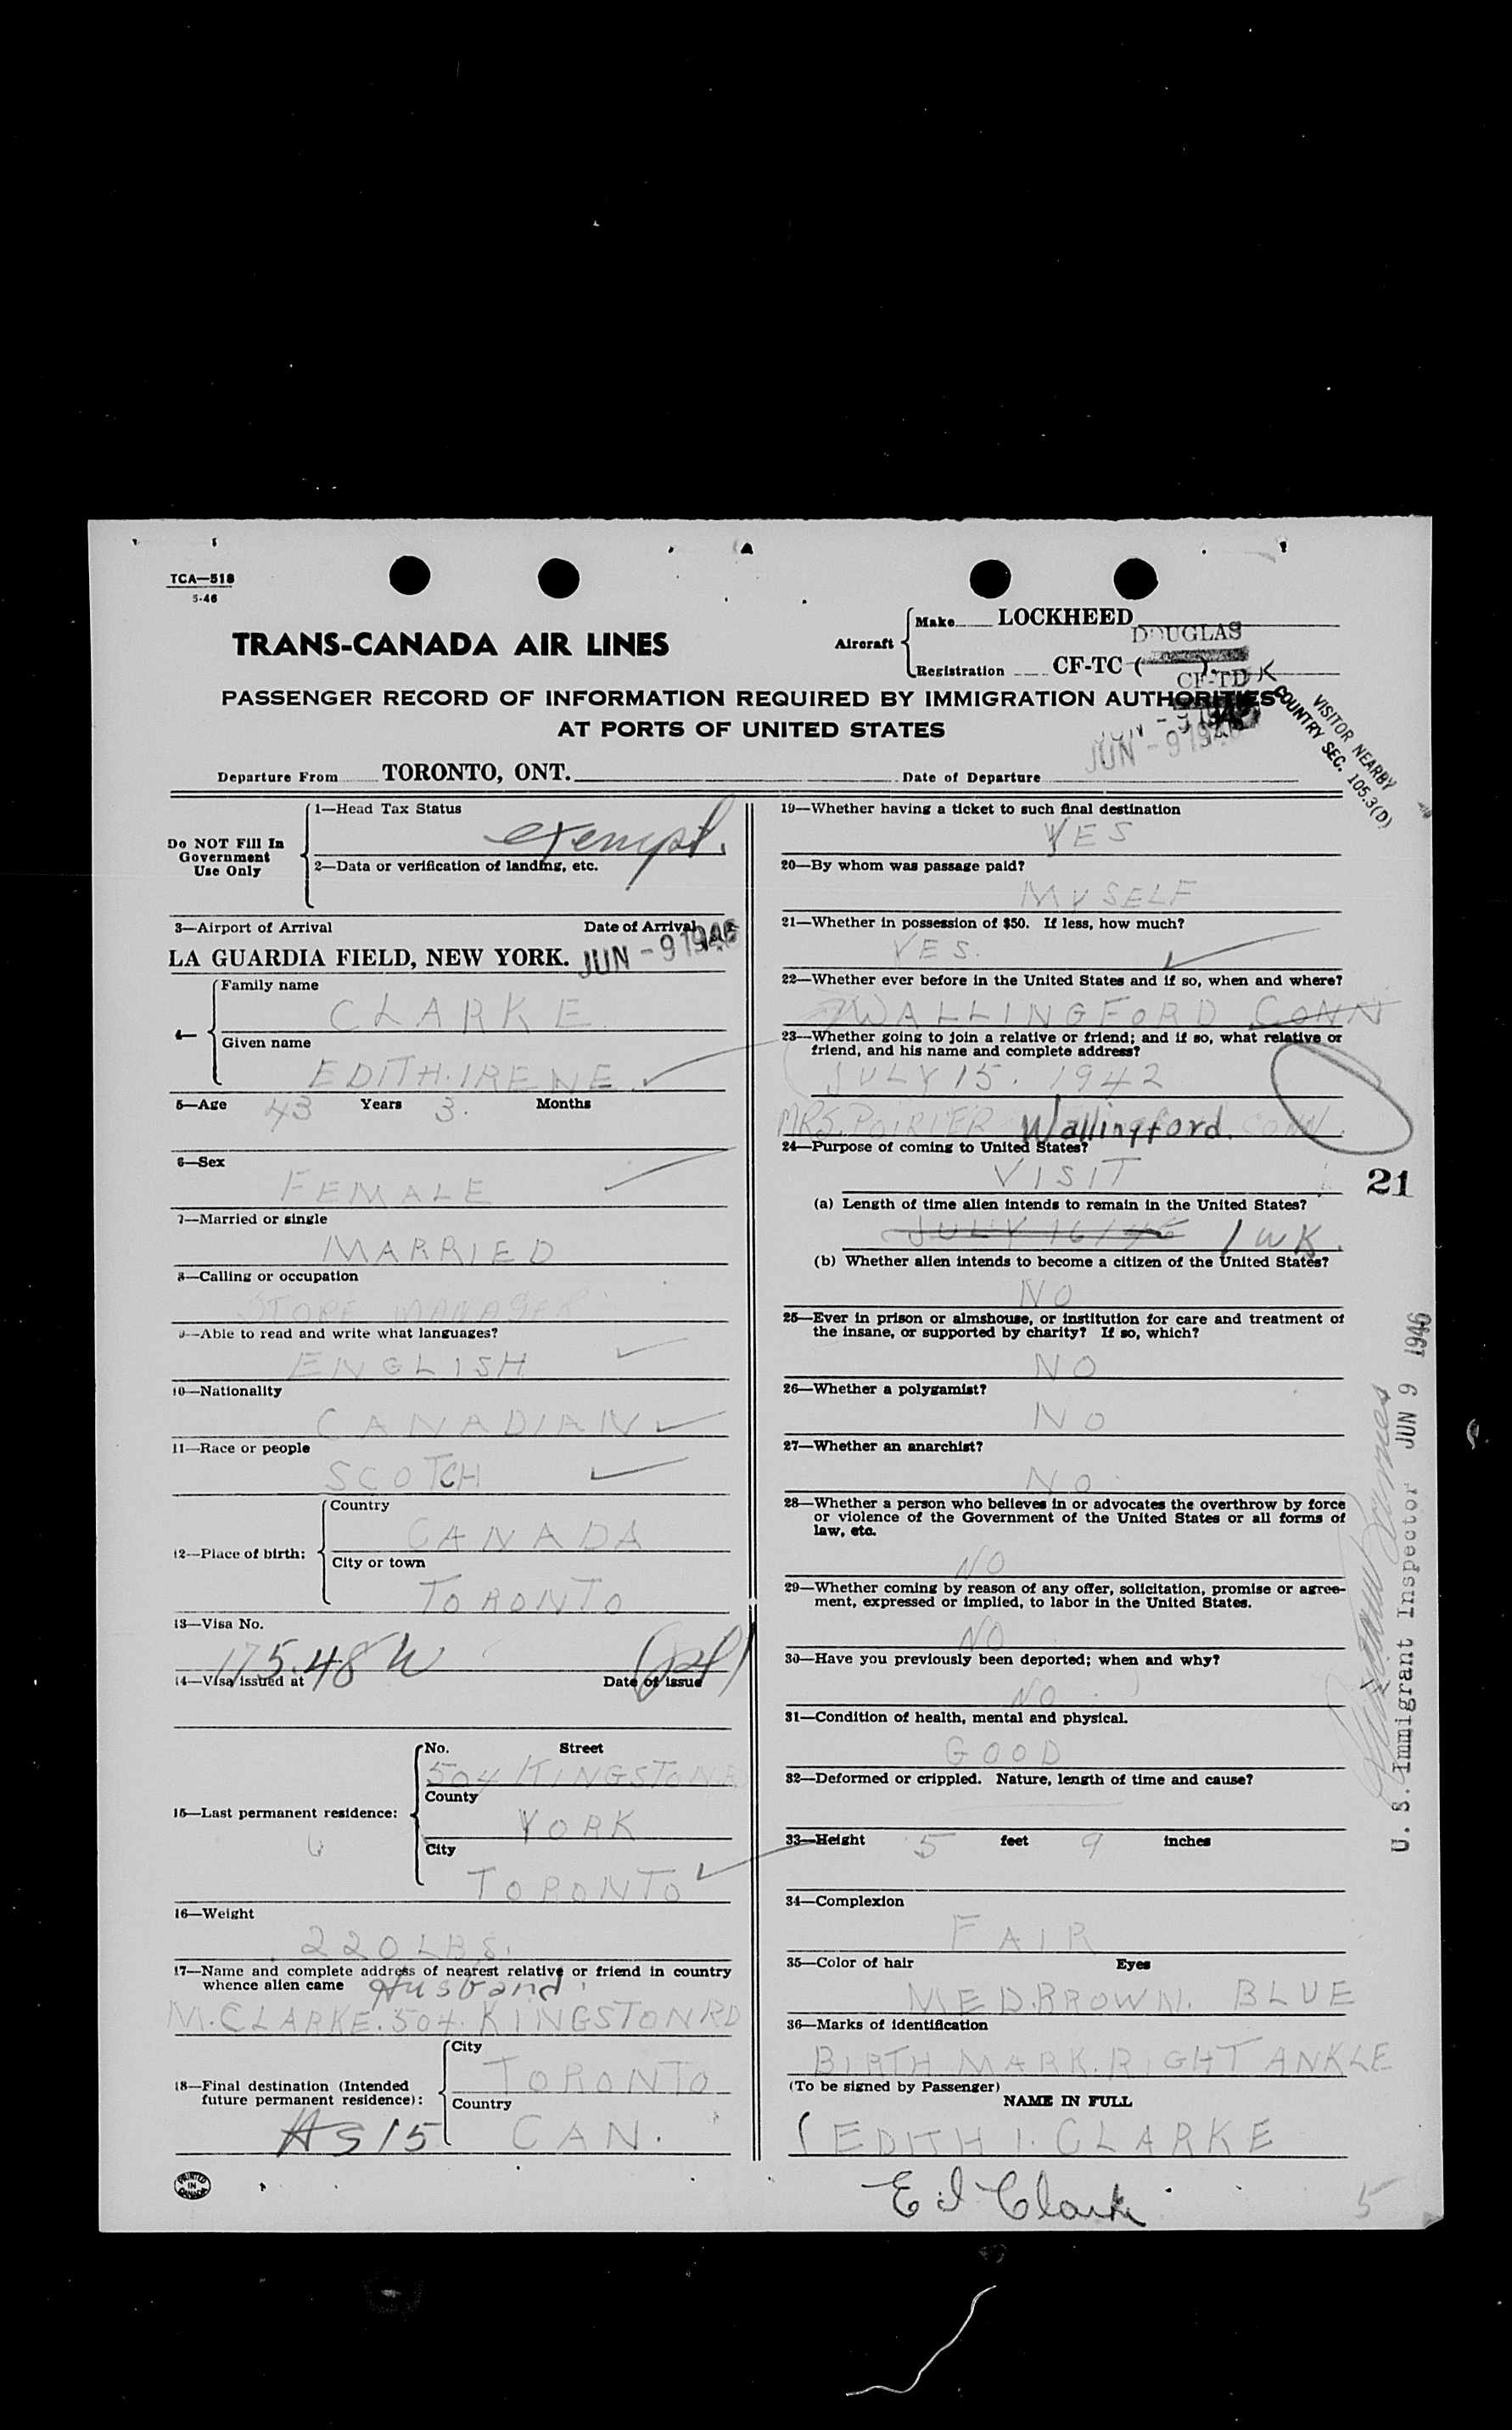 TCA—518
5-46
TRANS-CANADA AIR LINES
Aircraft
Make LOCKHEED
DOUGLAS
Registration CF-TC ( ).
CF-TD K
PASSENGER RECORD OF INFORMATION REQUIRED BY IMMIGRATION AUTHORITIES
AT PORTS OF UNITED STATES
VISITOR NEARBY
COUNTRY SEC. 105.3(D)
JUN - 9 1946
Departure From TORONTO, ONT. Date of Departure
Do NOT Fill In
Government
Use Only
1—Head Tax Status
exempt.
2—Data or verification of landing, etc.
3—Airport of Arrival Date of Arrival
LA GUARDIA FIELD, NEW YORK. JUN - 9 1946
4—
Family name
CLARKE
Given name
EDITH. IRENE
5—Age 43 Years 3. Months
6—Sex
FEMALE
7—Married or single
MARRIED
8—Calling or occupation
STORE MANAGER
9—Able to read and write what languages?
ENGLISH
10—Nationality
CANADIAN
11—Race or people
SCOTCH
12—Place of birth:
Country
CANADA
City or town
TORONTO
13—Visa No.
175.48
14—Visa issued at Date of issue
15—Last permanent residence:
No. Street
504 KINGSTON RD
County
YORK
City
TORONTO
16—Weight
220 LBS.
17—Name and complete address of nearest relative or friend in country
whence alien came Husband
M. CLARKE. 504. KINGSTON RD
18—Final destination (Intended
future permanent residence):
City
TORONTO
Country
CAN.
AS15
PRINTED
IN
CANADA
19—Whether having a ticket to such final destination
YES
20—By whom was passage paid?
MYSELF
21—Whether in possession of $50. If less, how much?
YES.
22—Whether ever before in the United States and if so, when and where?
WALLINGFORD CONN
23—Whether going to join a relative or friend; and if so, what relative or
friend, and his name and complete address?
JULY 15. 1942
MRS. POIRIER Wallingford. CONN.
24—Purpose of coming to United States?
VISIT
21
(a) Length of time alien intends to remain in the United States?
JULY 16/46 1 WK.
(b) Whether alien intends to become a citizen of the United States?
NO
25—Ever in prison or almshouse, or institution for care and treatment of
the insane, or supported by charity? If so, which?
NO
26—Whether a polygamist?
NO
27—Whether an anarchist?
NO.
28—Whether a person who believes in or advocates the overthrow by force
or violence of the Government of the United States or all forms of
law, etc.
NO
29—Whether coming by reason of any offer, solicitation, promise or agree-
ment, expressed or implied, to labor in the United States.
NO
30—Have you previously been deported; when and why?
NO
31—Condition of health, mental and physical.
GOOD
32—Deformed or crippled. Nature, length of time and cause?
33—Height 5 feet 9 inches
34—Complexion
FAIR
35—Color of hair Eyes
MED. BROWN. BLUE
36—Marks of identification
BIRTH MARK. RIGHT ANKLE
(To be signed by Passenger)
NAME IN FULL
EDITH I. CLARKE
E I Clarke
5
U. S. Immigrant Inspector JUN 9 1946